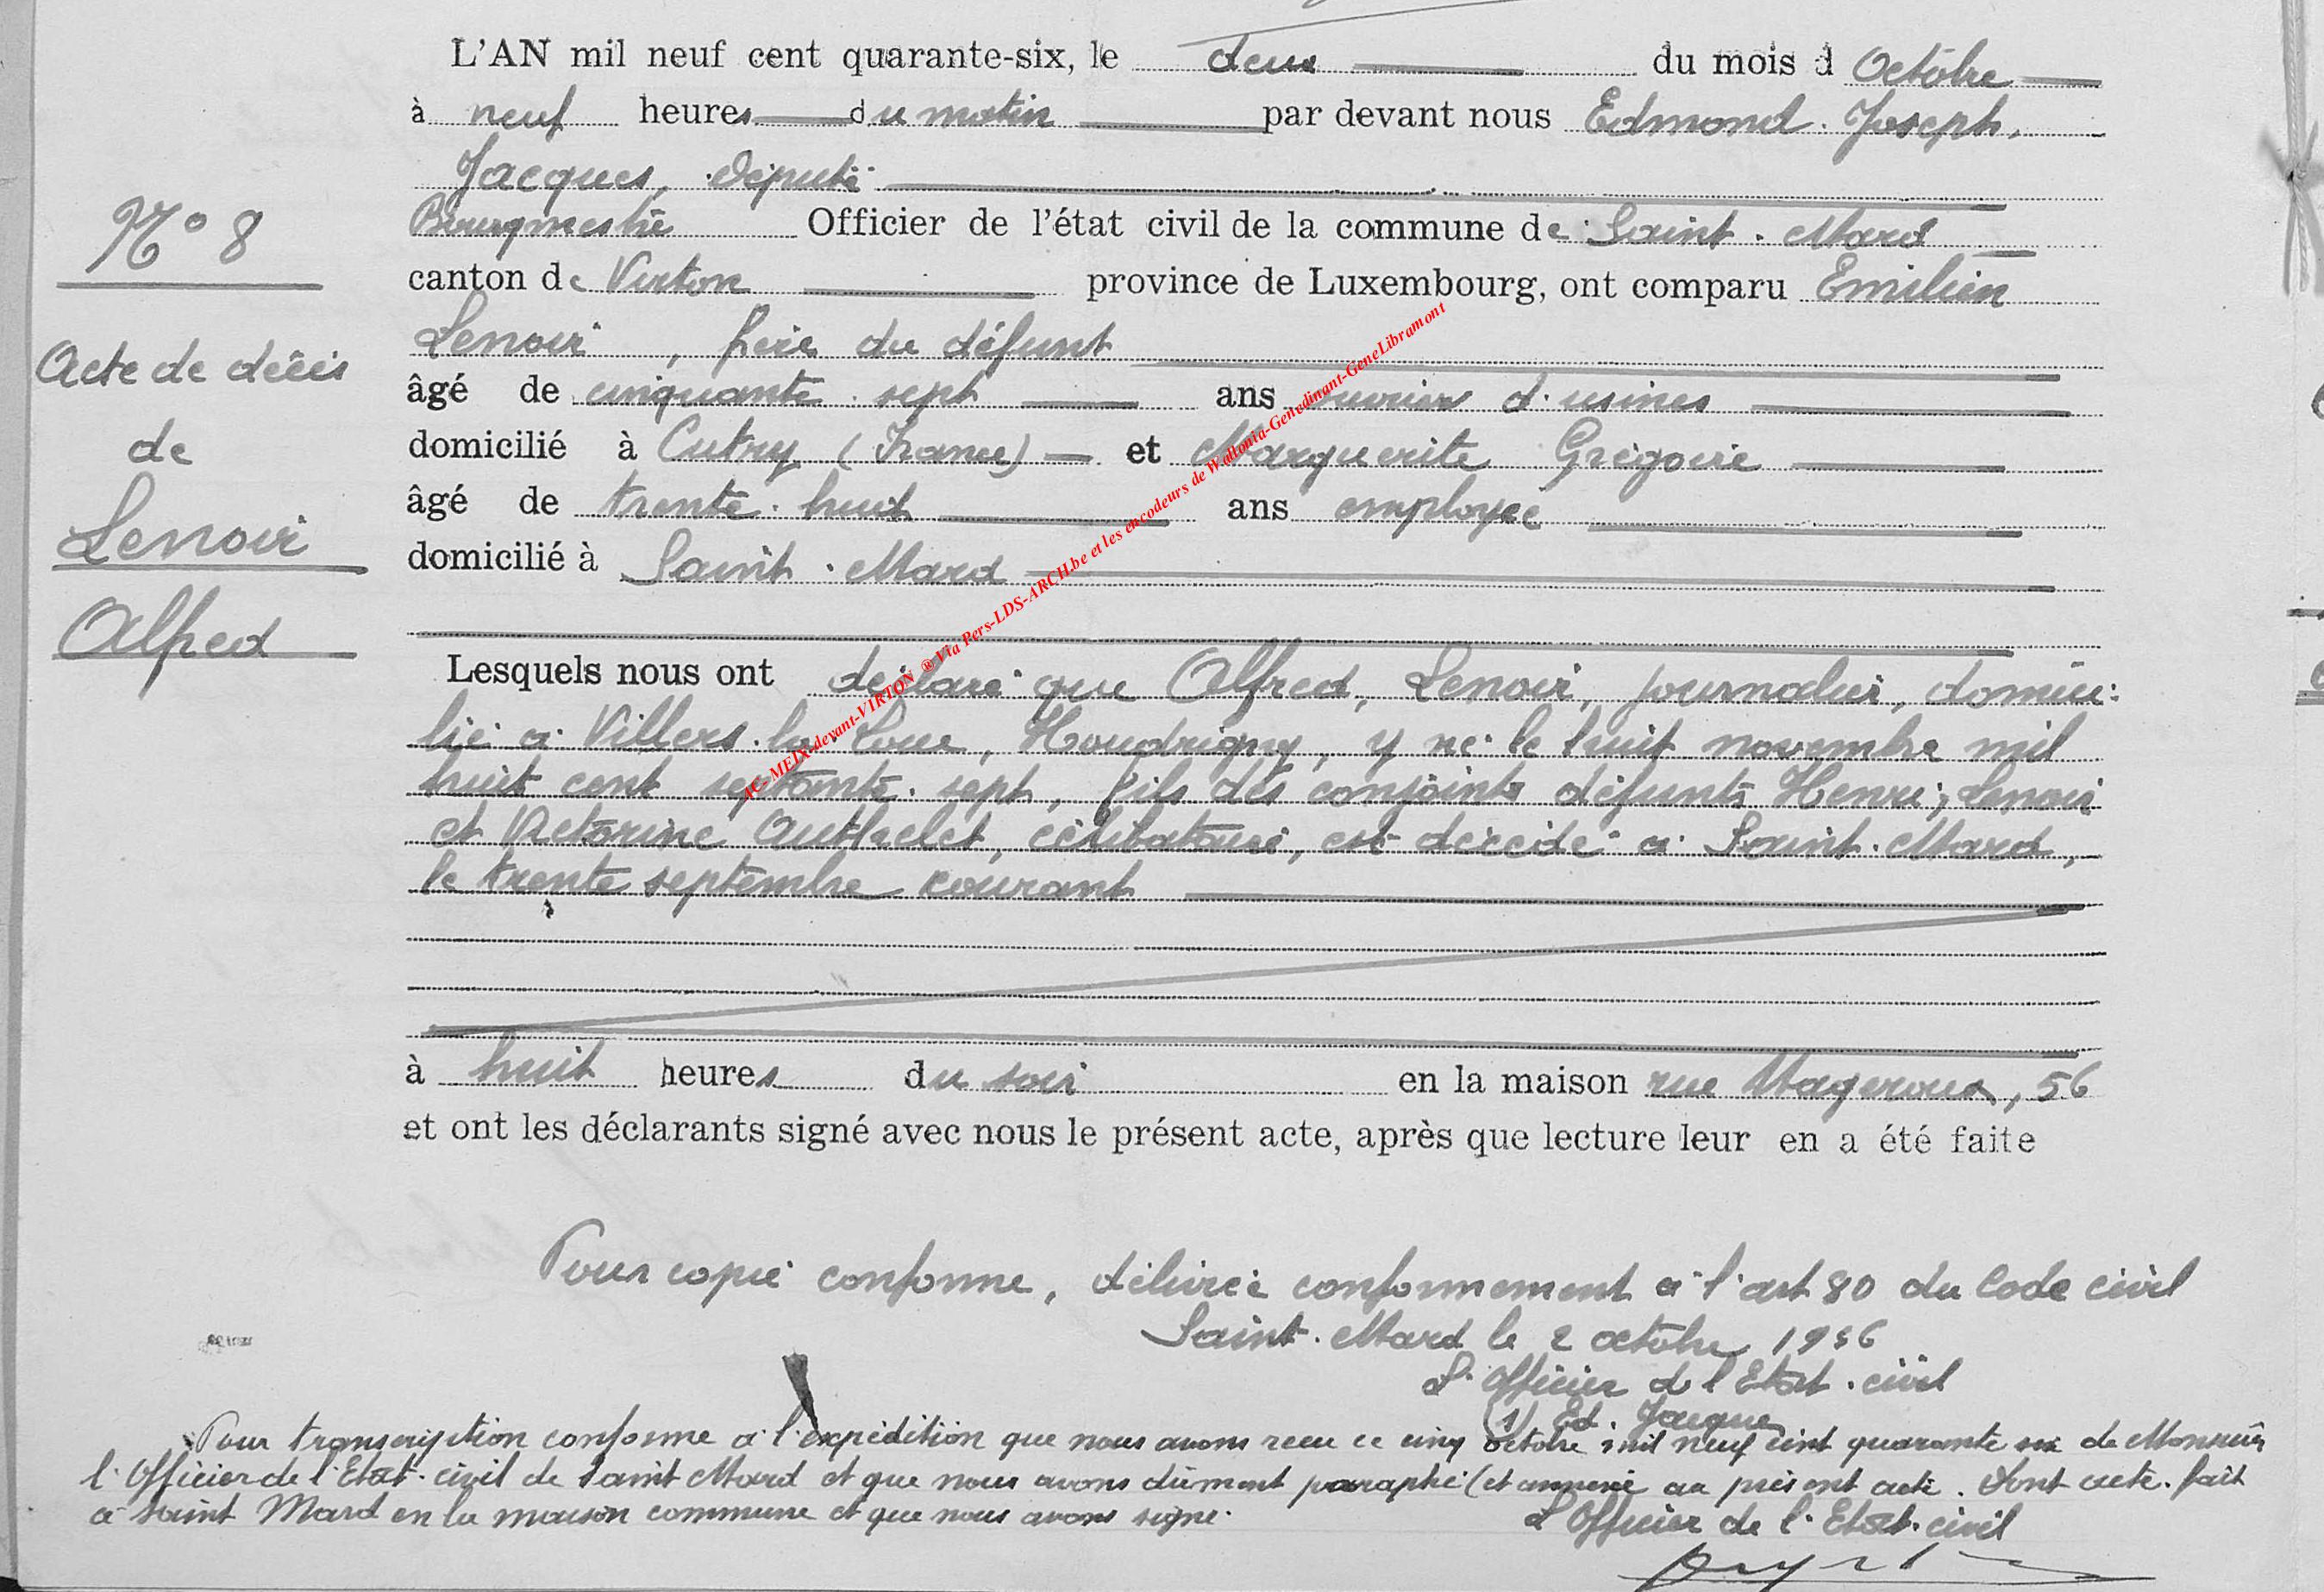 L'AN mil neuf cent quarante-six, le deux du mois d Octobre
à neuf heures du matin par devant nous Edmond. Joseph,
Jacques, député
Bourgmestre Officier de l'état civil de la commune de Saint-Mard
canton de Virton province de Luxembourg, ont comparu Emilien
Lenoir, frère du défunt
âgé de cinquante sept ans ouvrier d'usines
domicilié à Cutry (France) et Marguerite Grégoire
âgé de trente-huit ans employée
domicilié à Saint-Mard
N° 8
Acte de décès
de
Lenoir
Alfred
Lesquels nous ont déclaré que Alfred, Lenoir, journalier, domici-
lié à Villers-la-Loue, Houdrigny, y né le huit novembre mil
huit cent septante-sept, fils des conjoints défunts Henri, Lenoir
et Victorine Authelet, célibataire, est décédé à Saint-Mard,
le trente septembre courant
à huit heures du soir en la maison rue Mageroux, 56
et ont les déclarants signé avec nous le présent acte, après que lecture leur en a été faite
Pour copie conforme, délivrée conformement à l'art 80 du Code civil
Saint-Mard le 2 octobre 1946
L'Officier de l'Etat-civil
(s) Ed. Jacques
Pour transcription conforme à l'expédition que nous avons recu ce cinq octobre mil neuf cent quarante six de Monsieur
l'Officier de l'Etat-civil de Saint Mard et que nous avons dûment paraphé (et annexé au présent acte. Dont acte. fait
à Saint Mard en la maison commune et que nous avons signé.
L'Officier de l'Etat-civil
AC-MEIX-devant-VIRTON ® Via Pers-LDS-ARCH.be et les encodeurs de Wallonia-Genedinant-GeneLibramont